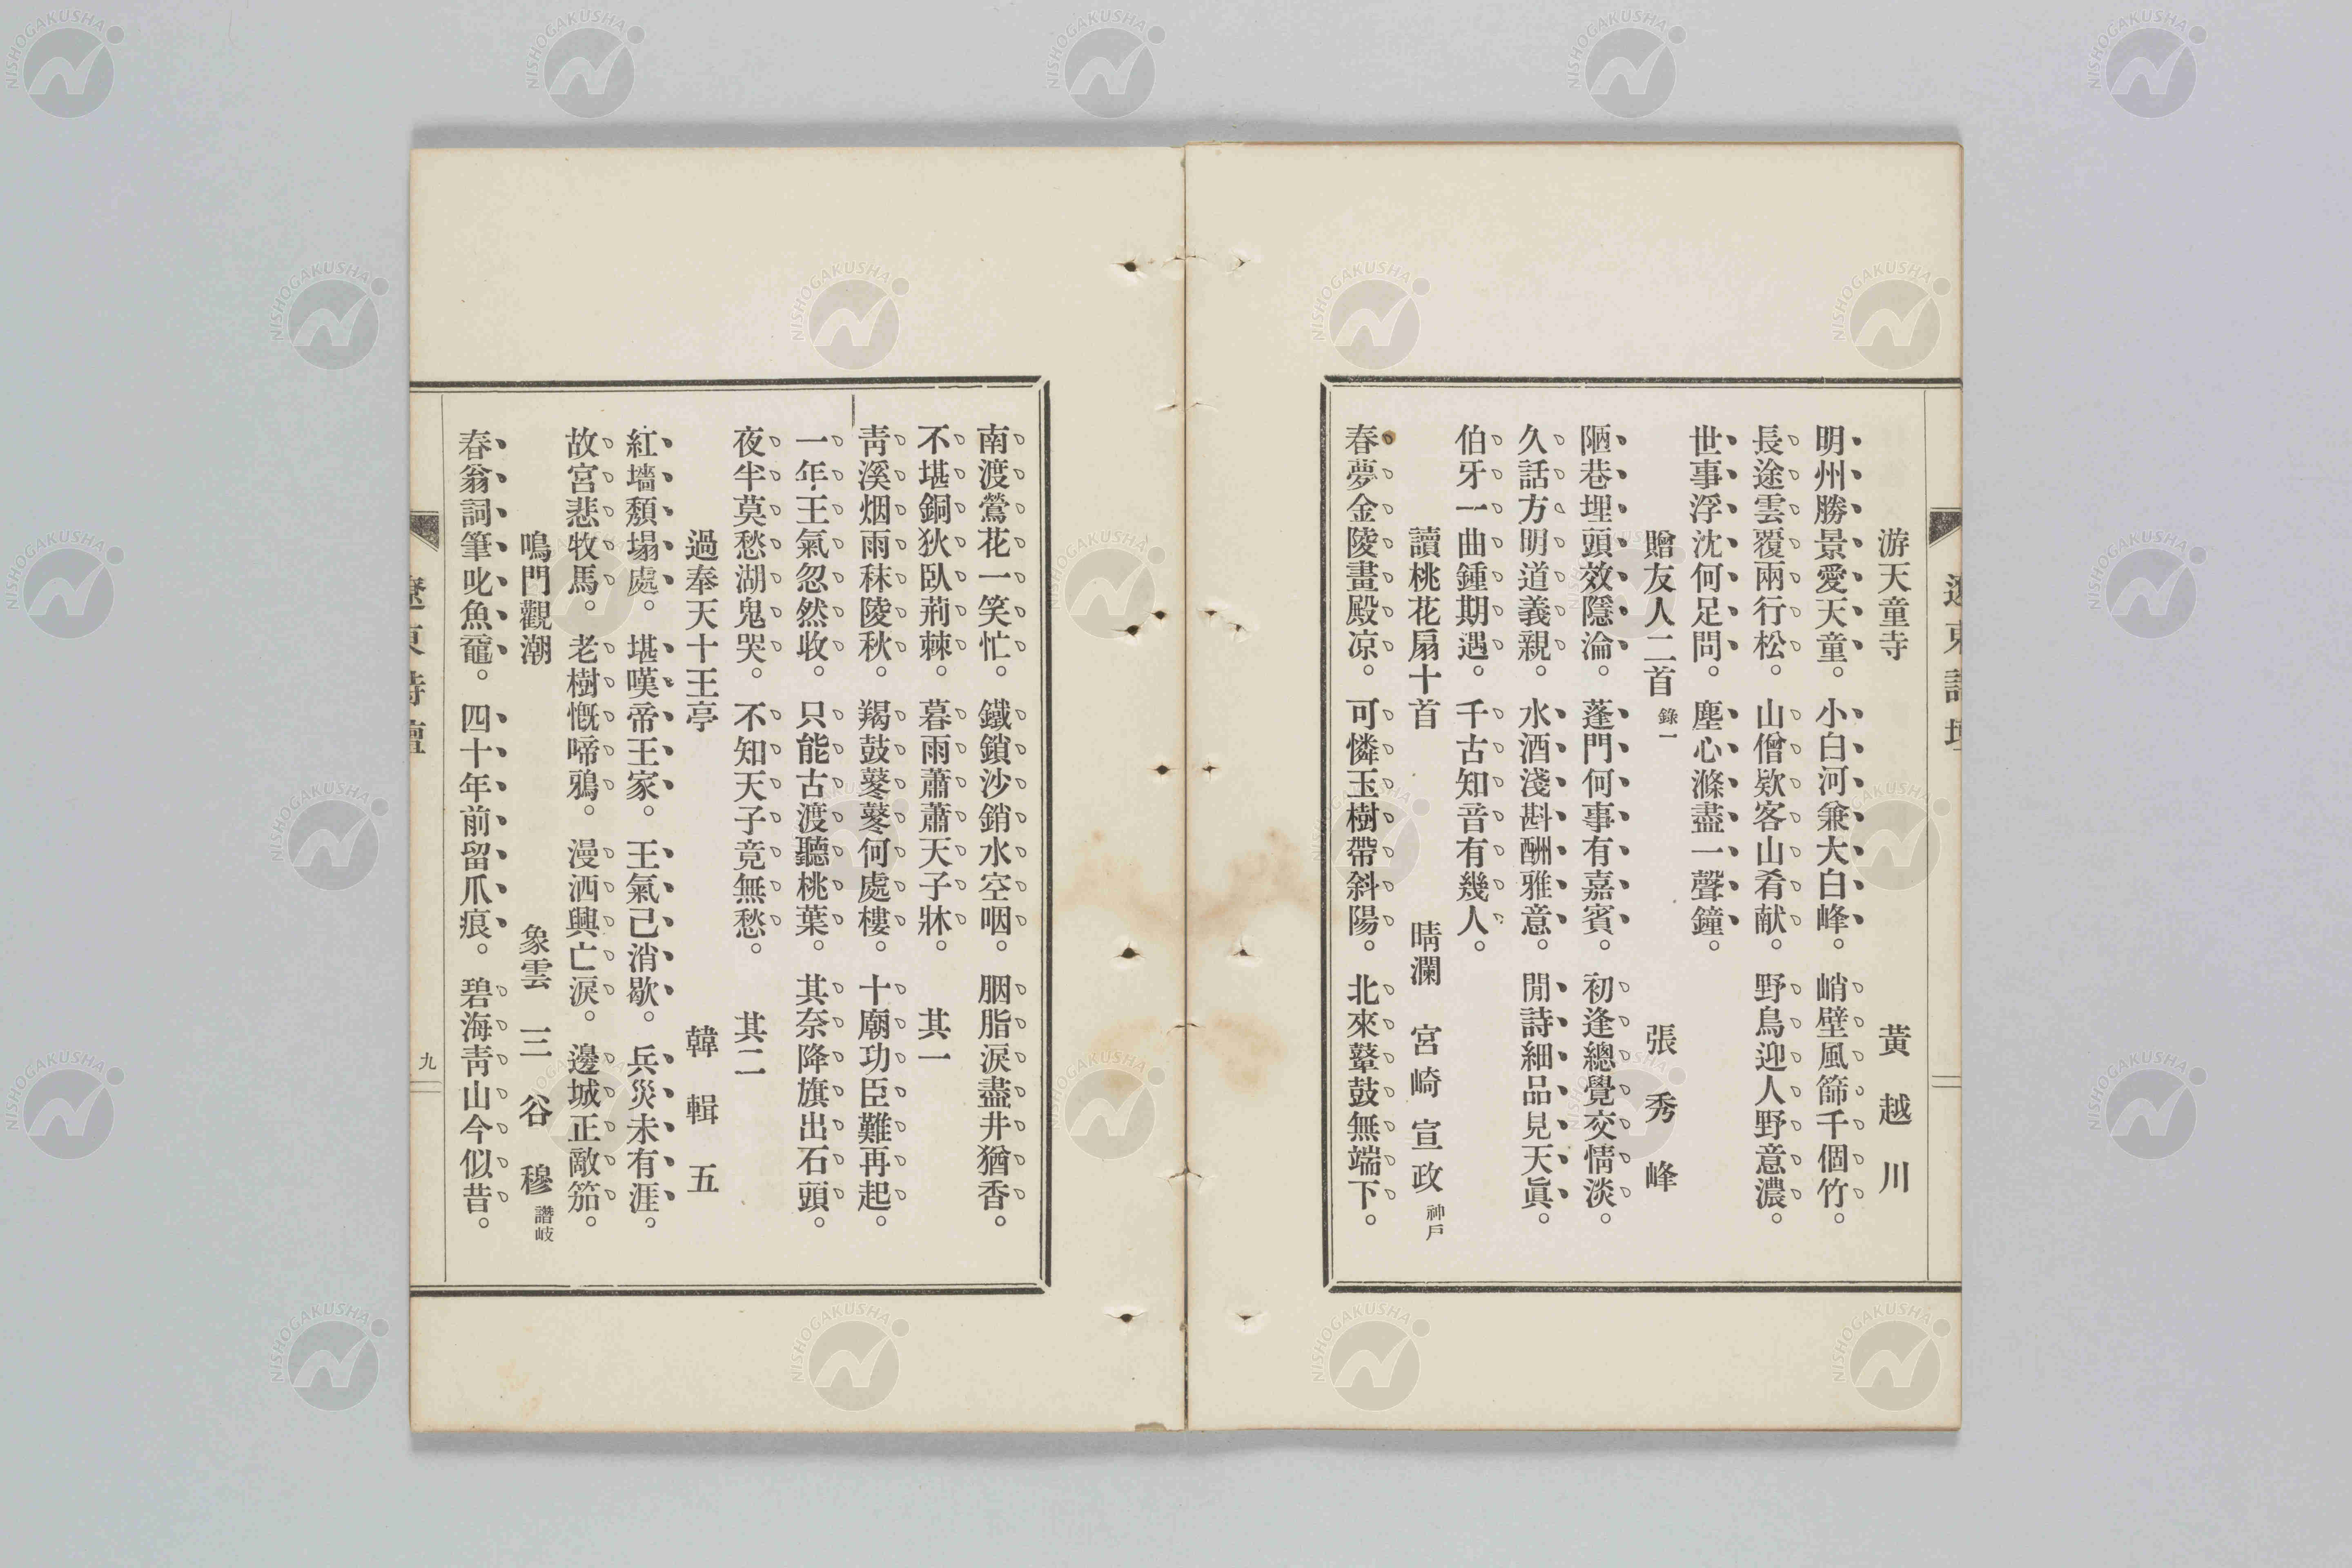 游天童寺　黄越川
明州勝景愛天童。小白河兼大白峰。峭壁風篩千個竹。
長途雲覆兩行松。山僧欵客山肴献。野鳥迎人野意濃。
世事浮沈何足問。塵心滌盡一聲鐘。
贈友人二首 錄一　張秀峰
陋巷埋頭效隱淪。蓬門何事有嘉賓。初逢總覺交情淡。
久話方明道義親。水酒淺斟酬雅意。閒詩細品見天眞。
伯牙一曲鍾期遇。千古知音有幾人。
讀桃花扇十首　晴瀾　宮崎宣政 神戶
春夢金陵畫殿凉。可憐玉樹帶斜陽。北來鼙鼓無端下。
南渡鶯花一笑忙。鐵鎖沙銷水空咽。胭脂淚盡井猶香。
不堪銅狄臥荊棘。暮雨蕭蕭天子牀。其一
靑溪烟雨秣陵秋。羯鼓鼕鼕何處樓。十廟功臣難再起。
一年王氣忽然收。只能古渡聽桃葉。其奈降旗出石頭。
夜半莫愁湖鬼哭。不知天子竟無愁。其二
過奉天十王亭　韓輯五
紅墻頽塌處。堪嘆帝王家。王氣己消歇。兵災未有涯。
故宮悲牧馬。老樹慨啼鴉。漫洒興亡淚。邊城正敵笳。
鳴門觀潮　象雲　三谷穆 讚岐
春翁詞筆叱魚黿。四十年前留爪痕。碧海靑山今似昔。
遼東詩壇
九
NISHOGAKUSHA